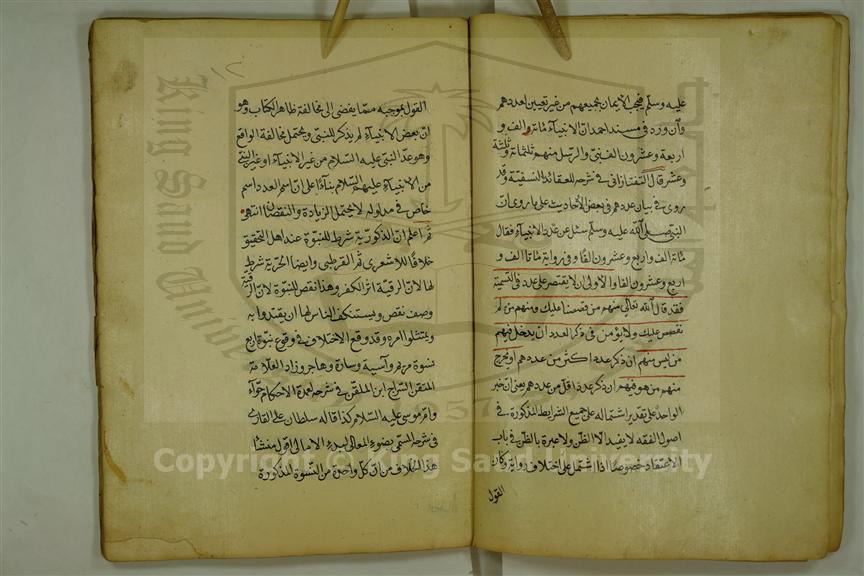 عليه وسلم فيجب الايمان بجميعهم من غير تعيين لعددهم
وان ورد في مسند احمد ان الانبياء مائة والف و
اربعة وعشرون الف نبي والرسل منهم ثلثمائة وثلثة
وعشر قال التفتازاني في شرحه للعقائد النسفية وقد
روى في بيان عددهم في بعض الأحاديث على ما روى ان
النبي صلى الله عليه وسلم سئل عن عدد الانبياء فقال
مائة الف واربع وعشرون الفا وفي رواية مائتا الف و
اربع وعشرون الفا والاولى ان لا يقتصر على عدد في التسمية
فقد قال الله تعالى منهم من قصصنا عليك ومنهم من لم
نقصص عليك ولا يؤمن في ذكر العدد ان يدخل فيهم
من ليس منهم ان ذكر عدد اكثر من عددهم او يخرج
منهم من هو فيهم ان ذكر عدد اقل من عددهم يعني ان خبر
الواحد على تقدير اشتماله على جميع الشرايط المذكورة في
اصول الفقه لا يفيد الا الظن ولا عبرة بالظن في باب
الاعتقاد خصوصا اذا اشتمل على اختلاف رواية وكان
القول
١٢
القول بموجبه مما يفضى الى مخالفة ظاهر الكتاب وهو
ان بعض الانبياء لم يذكر للنبي ويحتمل مخالفة الواقع
وهو عد النبي عليه السلام من غير الانبياء او غير النبي
من الانبياء عليهم السلام بناء على ان اسم العدد اسم
خاص في مدلوله لا يحتمل الزيادة والنقصان انتهى
ثم اعلم ان الذكورية شرط للنبوة عند اهل التحقيق
خلافا للاشعرى ثم القرطبي وايضا الحرية شرط
لها لان الرقية اثر الكفر وهذا نقص للنبوة لان الرقية
وصف نقص ويستنكف الناس لها ان يقتدوا به
ويمتثلوا امره وقد وقع الاختلاف في وقوع نبوة اربع
نسوة مريم وآسية وسارة وهاجر وزاد العلامة
المتقن السراج ابن الملقن في شرحه لعمدة الاحكام حوآء
وام موسى عليه السلام كذا قاله سلطان على القارى
في شرحه المسمى بضوء المعالى لبدء الامالى اقول منشأ
هذا الخلاف من ان كل واحدة من النسوة المذكورة
Copyright © King Saud University
King Saud University
1957